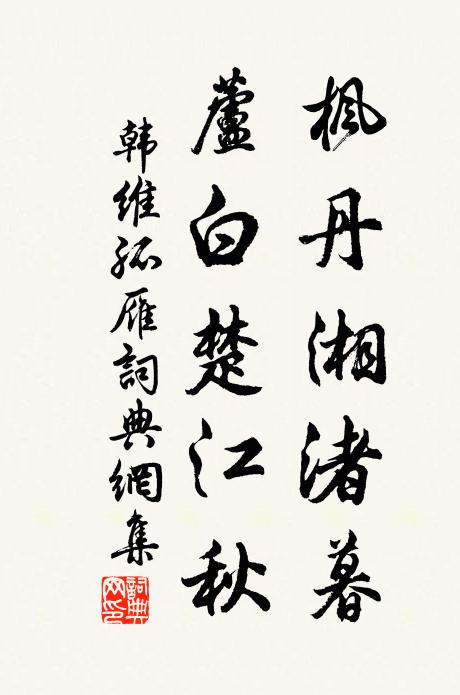 枫丹湘渚暮
蘆白楚江秋
韩维孤雁詞典網集
詞典網印